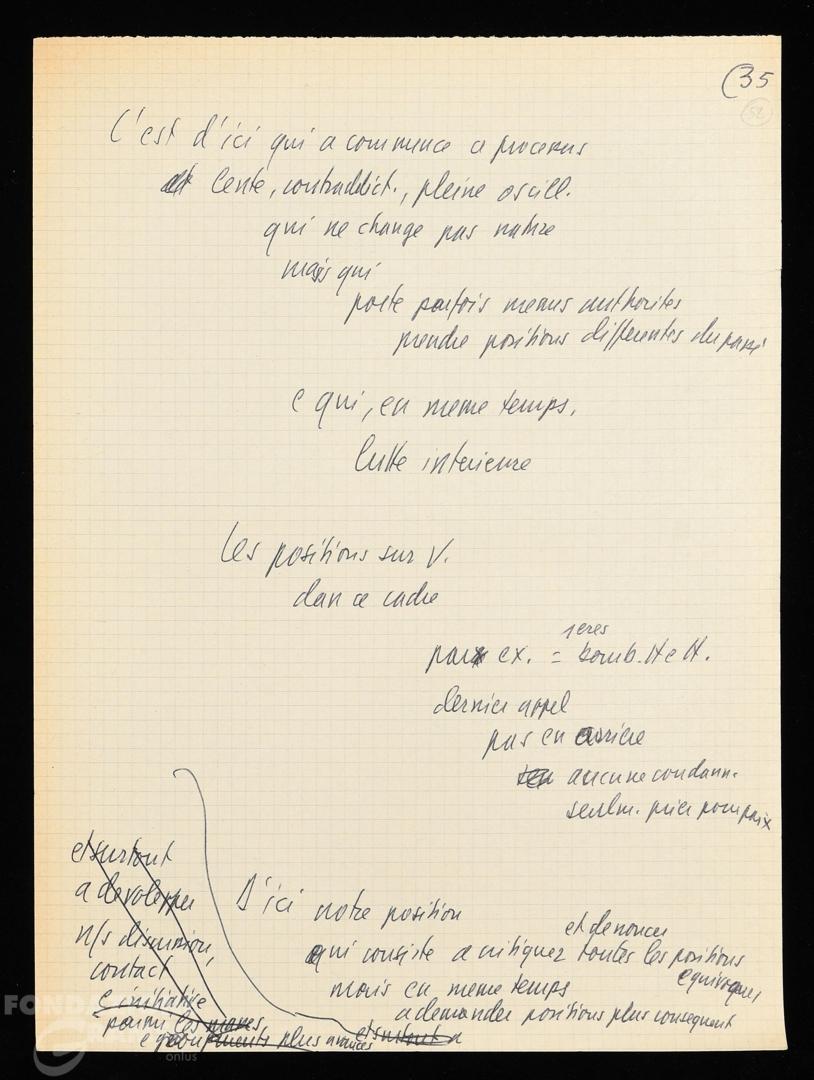 (35
52
C'est d'ici qui a commence a procesus
lente, contraddict., pleine oscill.
qui ne change pas nature
mais qui
porte parfois memes authorites
prendre positions differentes du passé
e qui, en meme temps,
lutte interieure
les positions sur V.
dan ce cadre
1eres
par ex. = bomb. H e H.
dernier appel
pas en arriere
aucune condann.
seulm. prier pour paix
et surtout
a developper
n/s discussion,
contact
e initiative
parmi les masses
e groupements plus avancés
D'ici notre position
et denoncer
qui consiste a critiquer toutes les positions
equivoques
mais en meme temps
a demander positions plus consequent
et surtout a
FONDA
onlus